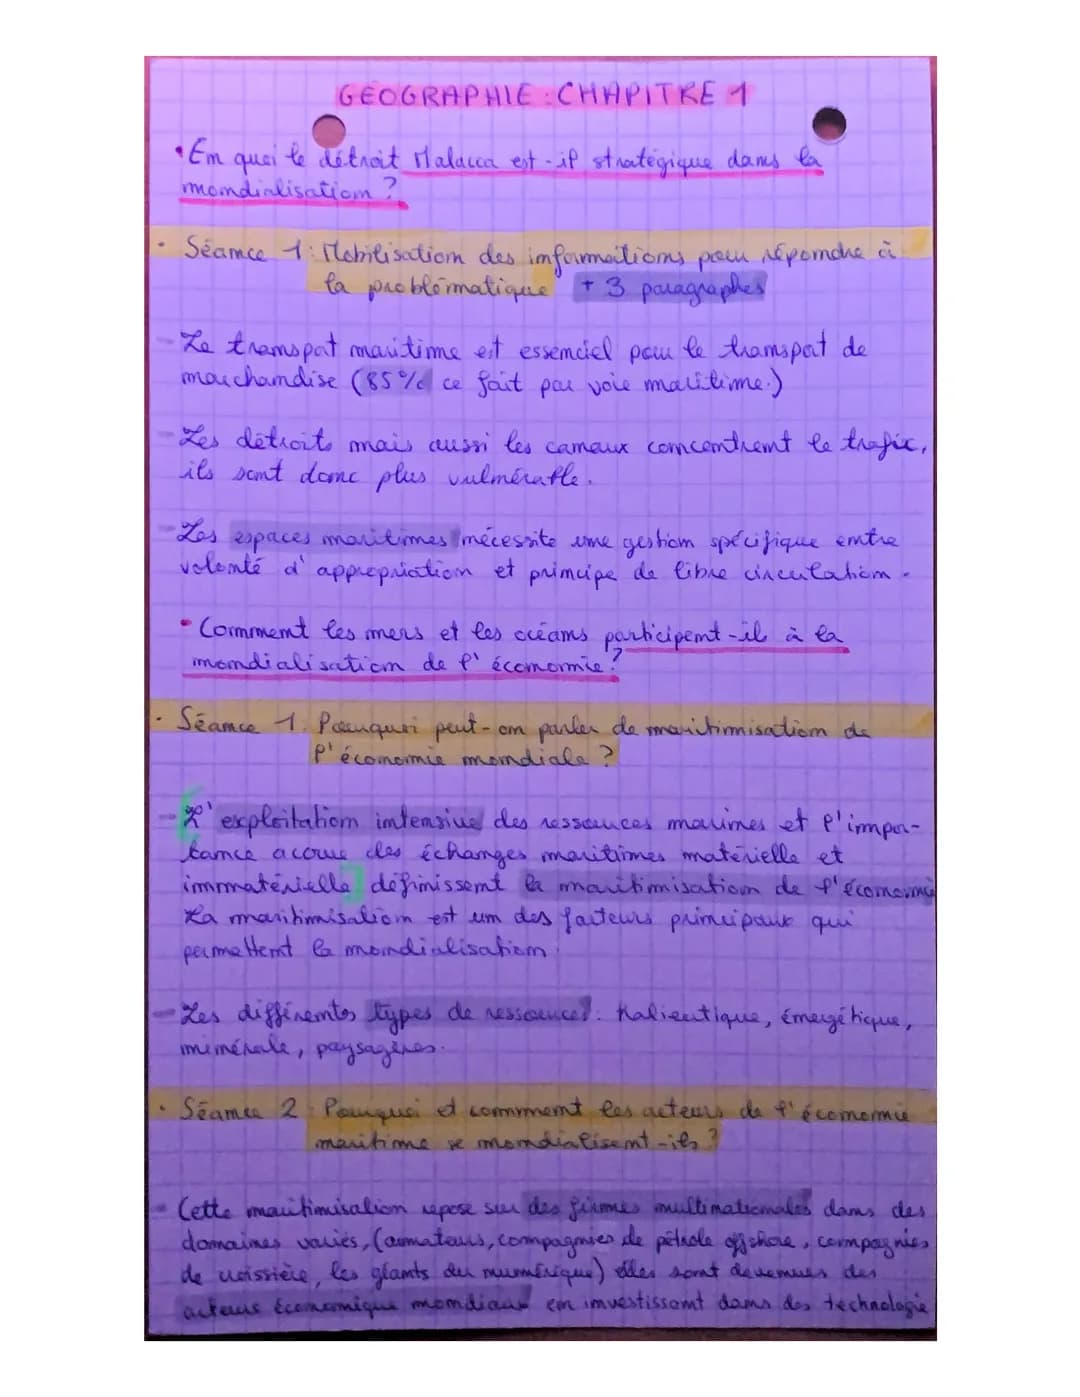 GÉOGRAPHIE : CHAPITRE 1
• En quoi le détroit Malacca est-il stratégique dans la
mondialisation ?
• Séance 1 : Mobilisation des informations pour répondre à
la problématique + 3 paragraphes
- Le transpot maritime est essenciel pour le transport de
marchandise (85% ce fait par voie maritime.)
- Les détroits mais aussi les canaux concentrent le trafic,
ils sont donc plus vulnérable.
- Les espaces maritimes nécessite une gestion spécifique entre
volonté d'appropriation et principe de libre circulation.
• Comment les mers et les océans participent-il à la
mondialisation de l'économie ?
• Séance 1 : Pourquoi peut-on parler de maritimisation de
l'économie mondiale ?
- [L'exploitation intensive des ressources marines et l'impor-
tance accrue des échanges maritimes matérielle et
immatérielle] définissent la maritimisation de l'économie
La maritimisation est un des facteurs principaux qui
permettent la mondialisation.
- Les différentes types de ressources : halieutique, énergétique,
minérale, paysagères.
• Séance 2 : Pourquoi et comment les acteurs de l'économie
maritime se mondialisent-ils ?
- Cette maritimisation repose sur des firmes multinationales dans des
domaines variés, (armateurs, compagnies de pétrole offshore, compagnies
de croissière, les géants du numérique) elles sont devenues des
acteurs économique mondiaux en investissant dans des technologie